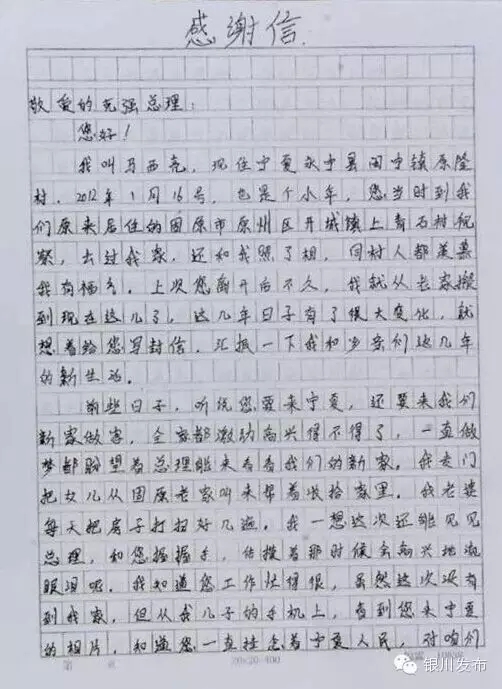 感谢信.
敬爱的克强总理:
您好!
我叫马西克,现住宁夏永宁县闽宁镇原隆
村。2012年1月16号,也是个小年,您当时到我
们原来居住的固原市原州区开城镇上青石村视
察,去过我家,还和我照了相,同村人都羡慕
我有福气。上次您离开后不久,我就从老家搬
到现在这儿了,这几年日子有了很大变化,就
想着给您写封信,汇报一下我和乡亲们这几年
的新生活。
前些日子,听说您要来宁夏,还要来我们
新家做客,全家都激动高兴得不得了,一直做
梦都盼望着总理能来看看我们的新家。我专门
把女儿从固原老家叫来帮着收拾家里。我老婆
每天把房子打扫好几遍。我一想这次还能见见
总理,和您握握手,估摸着那时候会高兴地流
眼泪呢。我知道您工作忙得很,虽然这次没有
到我家,但从我儿子的手机上,看到您来宁夏
的相片,知道您一直挂念着宁夏人民,对咱们
20×20=400
银川发布